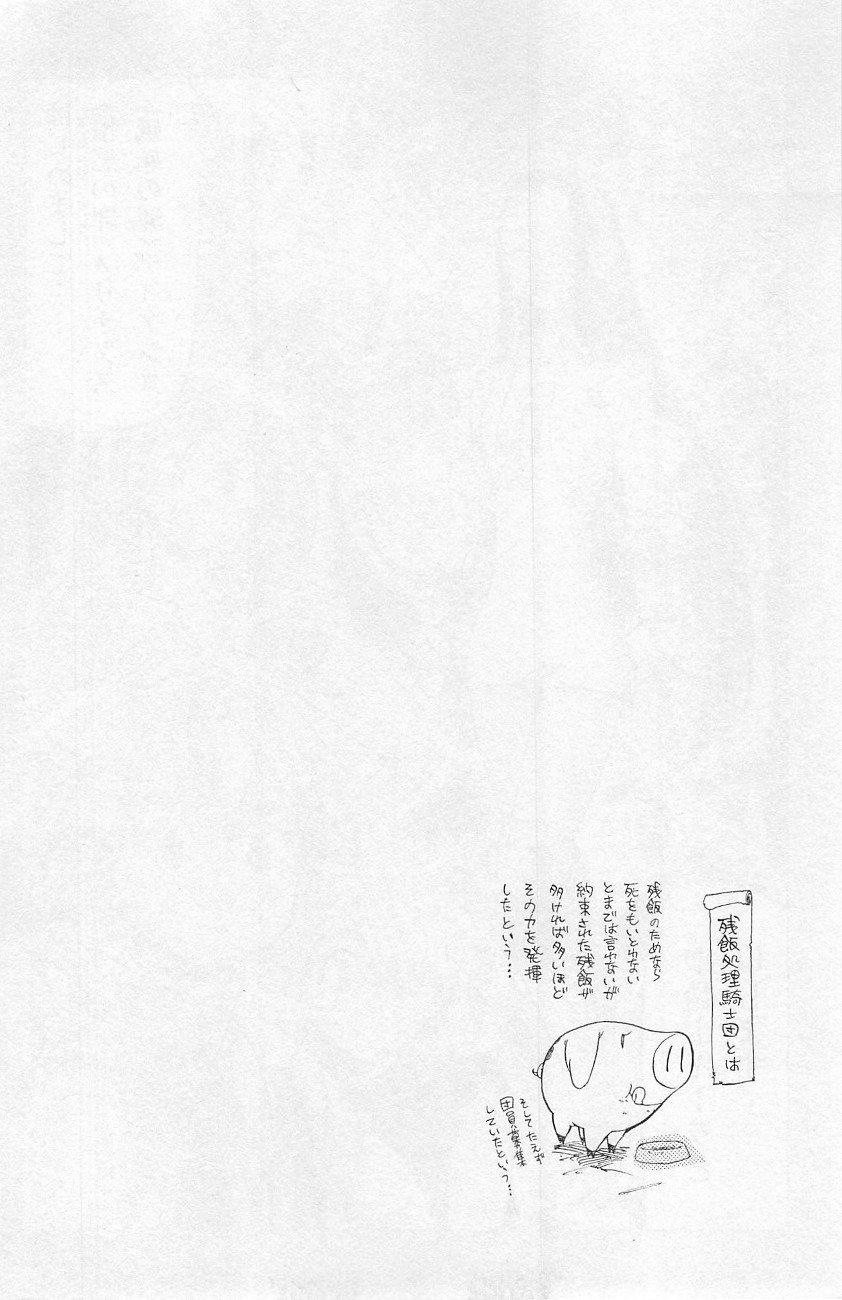 残飯処理騎士団とは
残飯のためなら
死をもいとわない
とまでは言わないが
約束された残飯が
多ければ多いほど
その力を発揮
したという…
そしてたえず
団員募集
していたという…